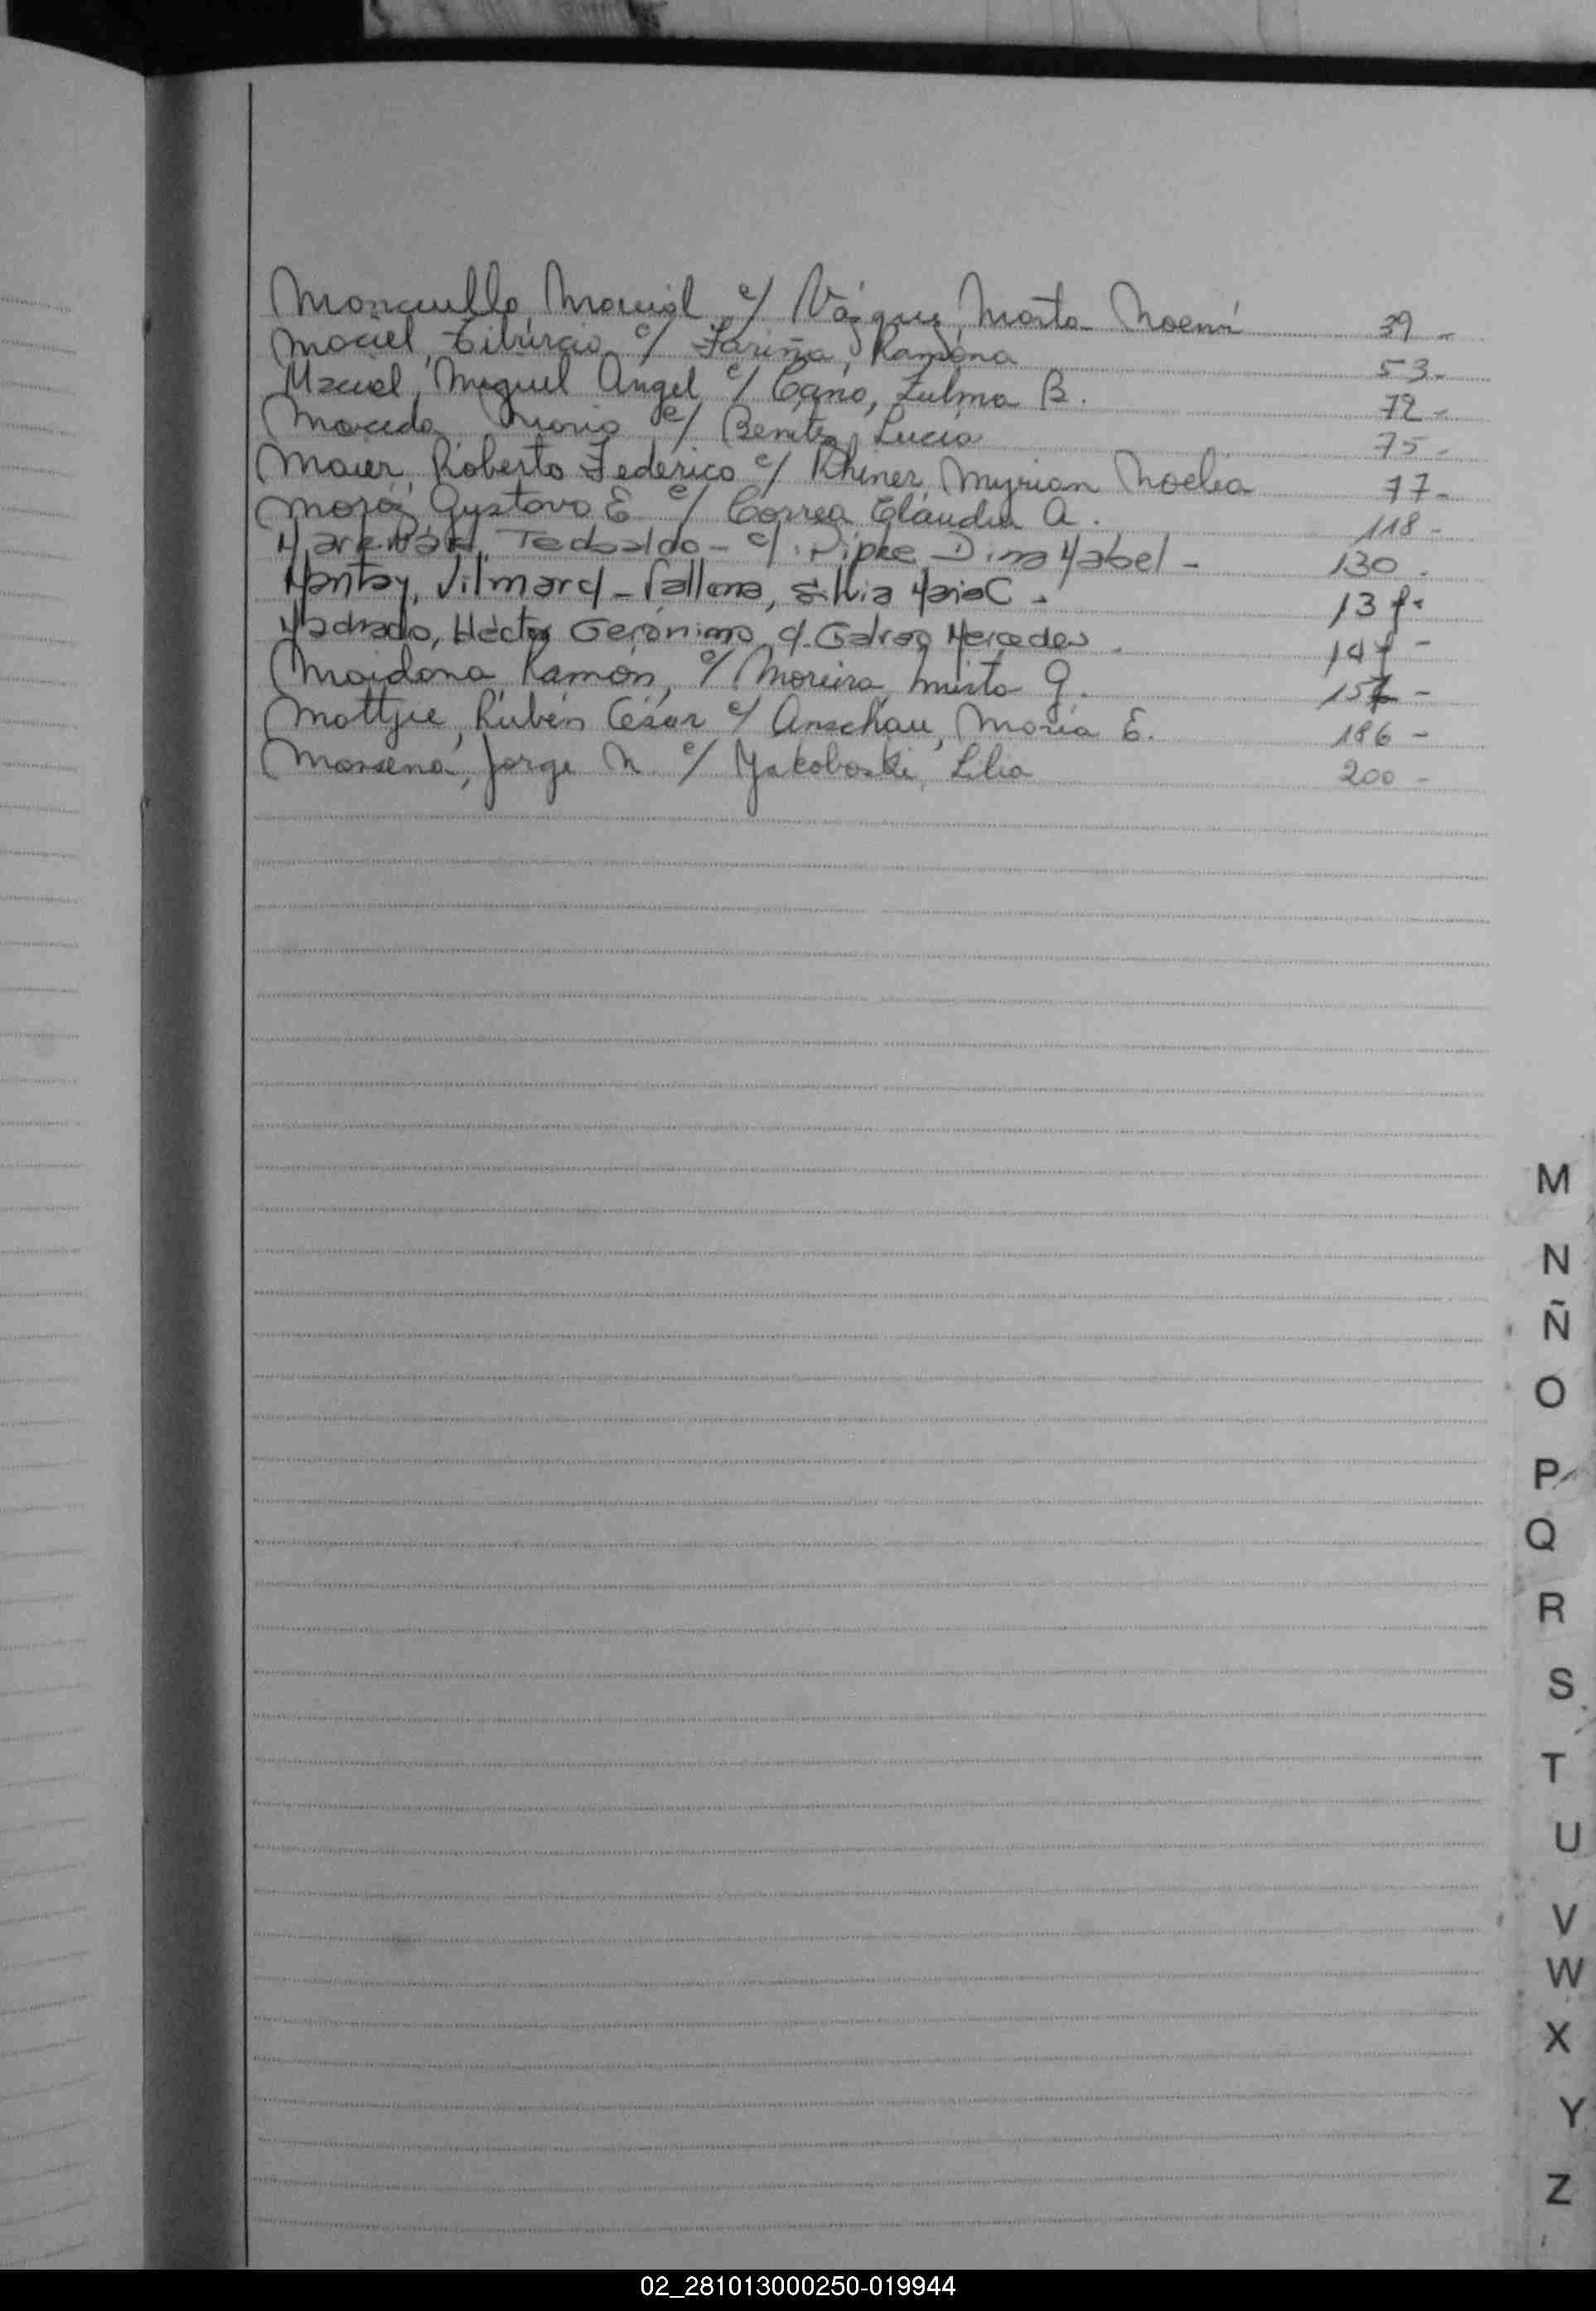 Mancuello, Marcial c/ Vázquez, Marta Noemí 39 -
Maciel, Tiburcio c/ Fariña, Ramona 53 -
Maciel, Miguel Angel c/ Cano, Zulma B. 72 -
Maceda Mario c/ Benitez, Lucia 75 -
Maier, Roberto Federico c/ Rhiner, Myrian Noelia 77 -
Gustavo E c/ Correa Claudia A. 118 -
Teobaldo - c/. Pipke, Dina Mabel - 130 .
Mantay, Vilmar c/ - Silvia Maria C -
Madrado, Héctor Gerónimo c/. Mercedes .
Maidana Ramón, c/ Moreira, Mirta G.
Mattjie, Rubén César c/ Anschau, María E. 186 -
Massena, Jorge N. c/ Yakoboski, Lilia 200 -
M
N
Ñ
O
P
Q
R
S
T
U
V
W
X
Y
Z
02_281013000250-019944